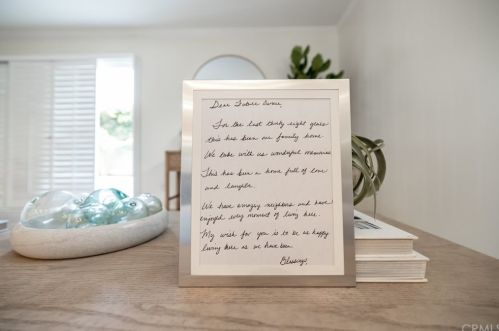 Dear Future Owner,
For the last thirty eight years
this has been our family home.
We take with us wonderful memories.
This has been a home full of love
and laughter.
We have amazing neighbors and have
enjoyed every moment of living here.
My wish for you is to be as happy
living here as we have been.
Blessings,
CRMLS